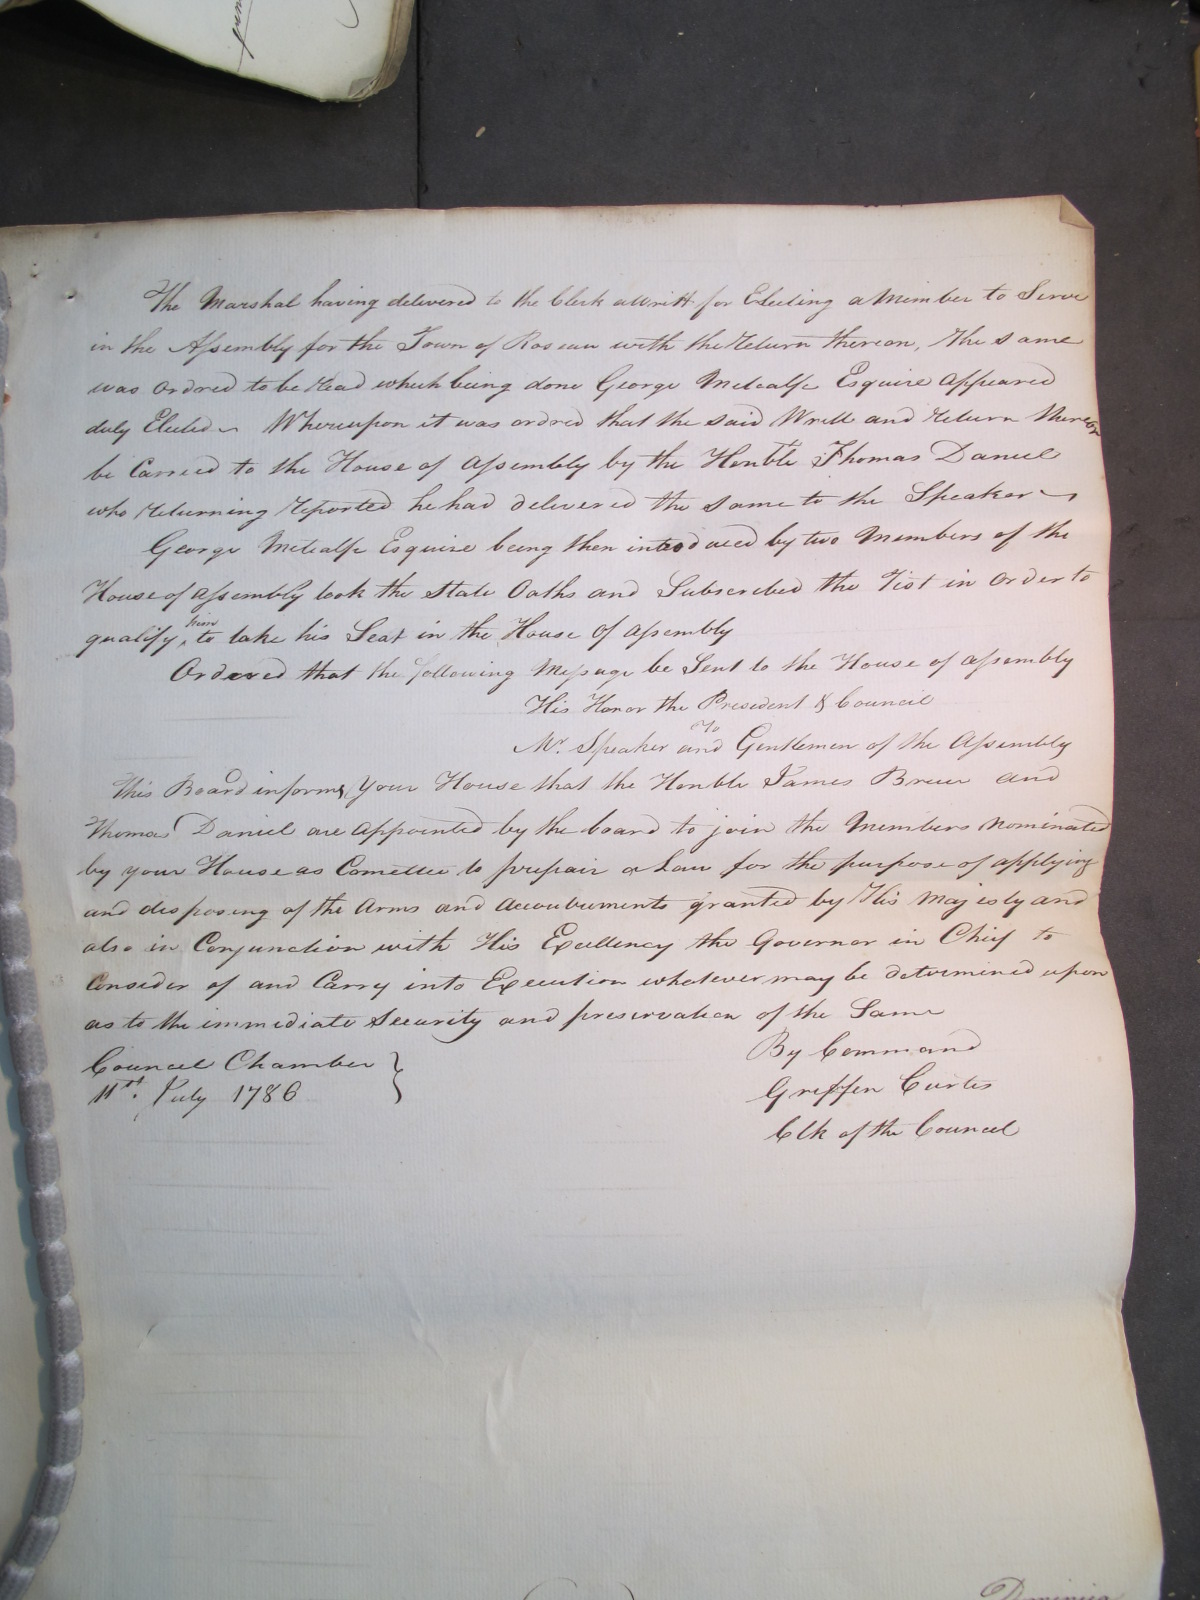 The Marshal having delivered to the Clerk a Writt for Electing a Member to Serve
in the Assembly for the Town of Roseau with the Return thereon, the same
was ordred to be Read which being done George Metcalfe Esquire appeared
duly Elected Whereupon it was ordred that the said Writt and Return thereon
be Carried to the House of Assembly by the Honble Thomas Daniel
who Returning Reported he had delivered the same to the Speaker
George Metcalfe Esquire being then introduced by two Members of the
House of Assembly took the State Oaths and Subscribed the Test in order to
qualify him to take his Seat in the House of Assembly
Ordered that the following Message be Sent to the House of Assembly
His Honor the President & Council
To
Mr. Speaker and Gentlemen of the Assembly
This Board informs your House that the Honble James Bruce and
Thomas Daniel are appointed by the board to join the Members nominated
by your House as Comettee to prepair a Law for the purpose of applying
and disposing of the Arms and Accoutrements granted by His Majesty and
also in Conjunction with His Excellency the Governor in Chief to
Consider of and Carry into Execution whatever may be determined upon
as to the immediate Security and preservation of the Same
By Command
Council Chamber
11th. July 1786
Griffin Curtis
Clk of the Council
Dominica